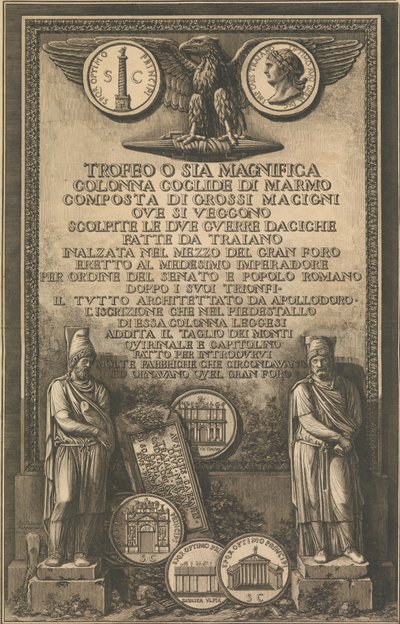 SPQR OPTIMO PRINCIPI
S C
TROFEO O SIA MAGNIFICA
COLONNA COCLIDE DI MARMO
COMPOSTA DI GROSSI MACIGNI
OVE SI VEGGONO
SCOLPITE LE DUE GUERRE DACICHE
FATTE DA TRAIANO
INALZATA NEL MEZZO DEL GRAN FORO
ERETTO AL MEDESIMO IMPERADORE
PER ORDINE DEL SENATO E POPOLO ROMANO
DOPPO I SUOI TRIONFI-
IL TUTTO ARCHITETTATO DA APOLLODORO-
L'ISCRIZIONE CHE NEL PIEDESTALLO
DI ESSA COLONNA LEGGESI
ADDITA IL TAGLIO DEI MONTI
QUIRINALE E CAPITOLINO
FATTO PER INTRODURVI
MOLTE FABBRICHE CHE CIRCONDAVANO
ED ORNAVANO QUEL GRAN FORO
SC
SPQR OPTIMO PRI
BASILICA VLPIA
SPQR OPTIMO PRINCIPI
SC